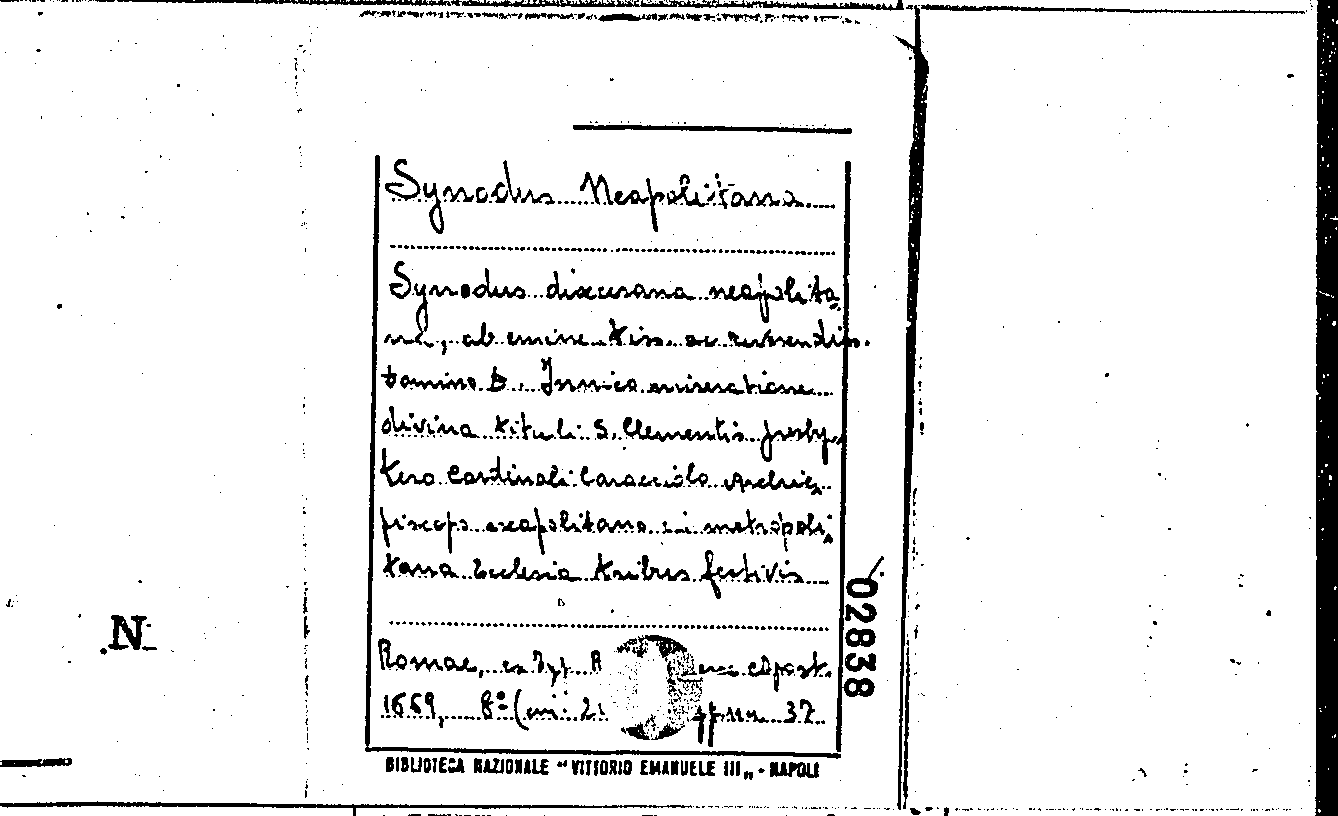 Synodus Neapolitana
Synodus diocesana neapolita-
na, ab eminentiss. ac reverendiss.
domino D. Innico miseratione
divina tituli S. Clementis presby-
tero Cardinali Caracciolo Archie-
piscopo neapolitano in metropoli-
tana Ecclesia tribus festivis
Romae, ex Typ. R Apost.
1669, 8º ( pp. nn. 37
02838
N
BIBLIOTECA NAZIONALE "VITTORIO EMANUELE III„ - NAPOLI